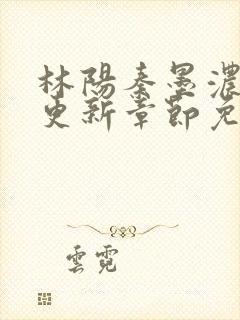 林陽秦墨濃
更新章節免
雲霓